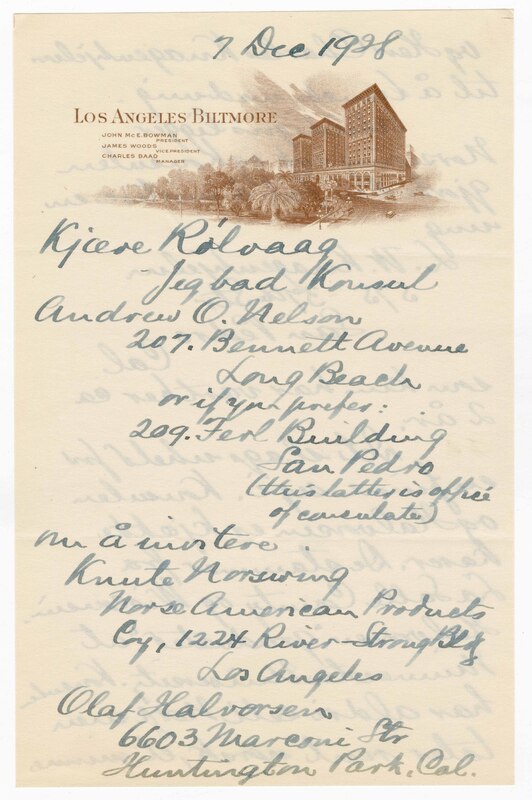 7 Dec 1928
LOS ANGELES BILTMORE
JOHN McE. BOWMAN
PRESIDENT
JAMES WOODS
VICE PRESIDENT
CHARLES BAAD
MANAGER
Kjære Rölvaag
Jeg bad Konsul
Andrew O. Nelson
207. Bennett Avenue
Long Beach
or if you prefer:
209. Ferl Building
San Pedro
(this latter is office
of consulate)
om å invitere
Knute Norswing
Norse American Products
Coy, 1224 River-Strong Bldg
Los Angeles
Olaf Halvorsen
6603 Marconi Str
Huntington Park, Cal.